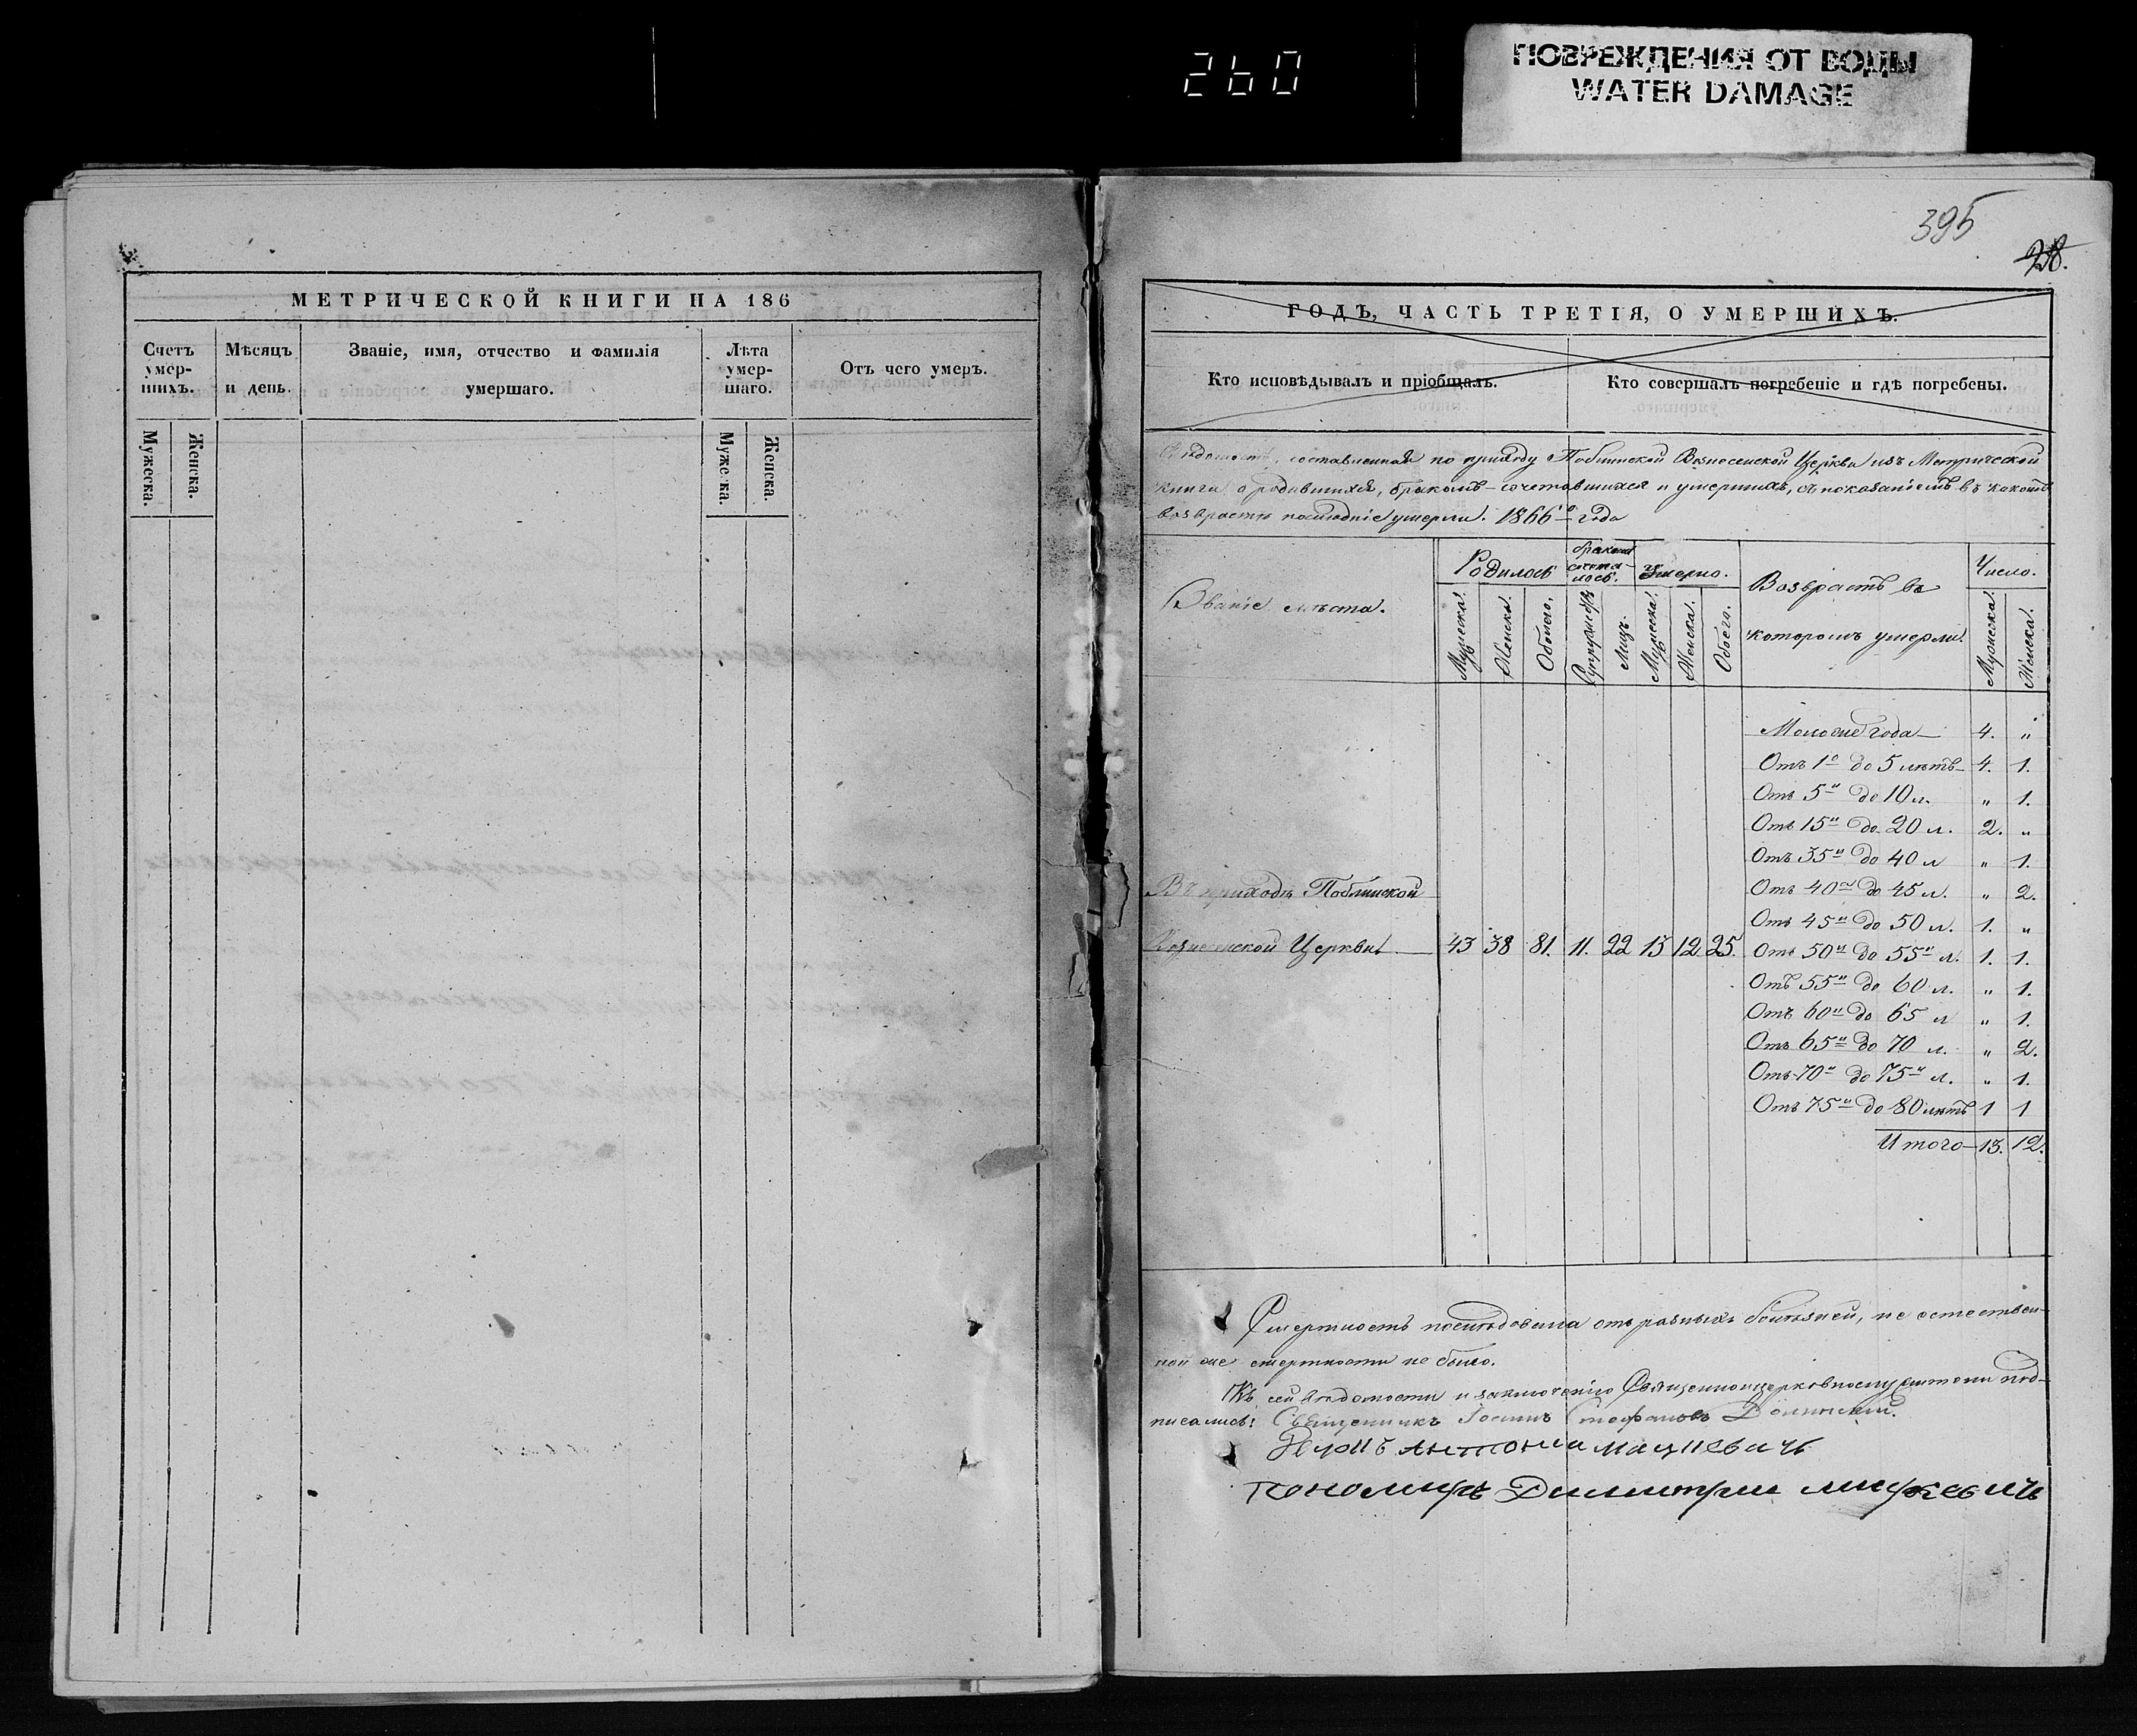 260
ПОВРЕЖДЕНИЯ ОТ ВОДЫ
WATER DAMAGE
МЕТРИЧЕСКОЙ КНИГИ НА 186
Счетъ умер-
шихъ.
Мѣсяцъ
и день.
Званіе, имя, отчество и фамилія
умершаго.
Лѣта
умер-
шаго.
Отъ чего умеръ.
Мужеска.
Женска.
Мужеска.
Женска.
395
28.
ГОДЪ, ЧАСТЬ ТРЕТІЯ, О УМЕРШИХЪ.
Кто исповѣдывалъ и пріобщалъ.
Кто совершалъ погребеніе и гдѣ погребены.
Вѣдомость, составленная по приходу Вознесенской Церкви изъ Метрической
книги о родившихся, бракомъ-сочетавшихся и умершихъ, съ показаніемъ въ какомъ
возврастѣ послѣдніе умерли. 1866го года
Званіе мѣста.
Родилось
бракомъ
сочета-
лось.
Умерло.
Возврастъ въ
которомъ умерли.
Число.
Мужеска.
Женска.
Обоего.
Супружествъ
Лицъ.
Мужеска.
Женска.
Обоего.
Мужеска.
Женска.
Моложе года — 4. „
Отъ 1го до 5 лѣтъ — 4. 1.
Отъ 5и до 10 л. „ 1.
Отъ 15и до 20 л. 2. „
Отъ 35и до 40 л „ 1.
Отъ 40а до 45 л. „ 2.
Отъ 45и до 50 л. 1. „
Отъ 50и до 55и л. 1. 1.
Отъ 55и до 60 л. „ 1.
Отъ 60и до 65 л „ 1.
Отъ 65и до 70 л. „ 2.
Отъ 70и до 75и л. „ 1.
Отъ 75и до 80 лѣтъ 1 1
Итого — 13. 12.
Въ приходѣ
Вознесенской Церкви — 43 38 81. 11. 22 13 12 25.
Смертность послѣдовала отъ разныхъ болѣзней, не естествен-
ной же смертности не было.
Къ сей вѣдомости и заключенію Священноцерковнослужители под-
писались: Священникъ Іоаннъ Стефановъ
Антоній Мацкевичъ
Пономарь Димитрий